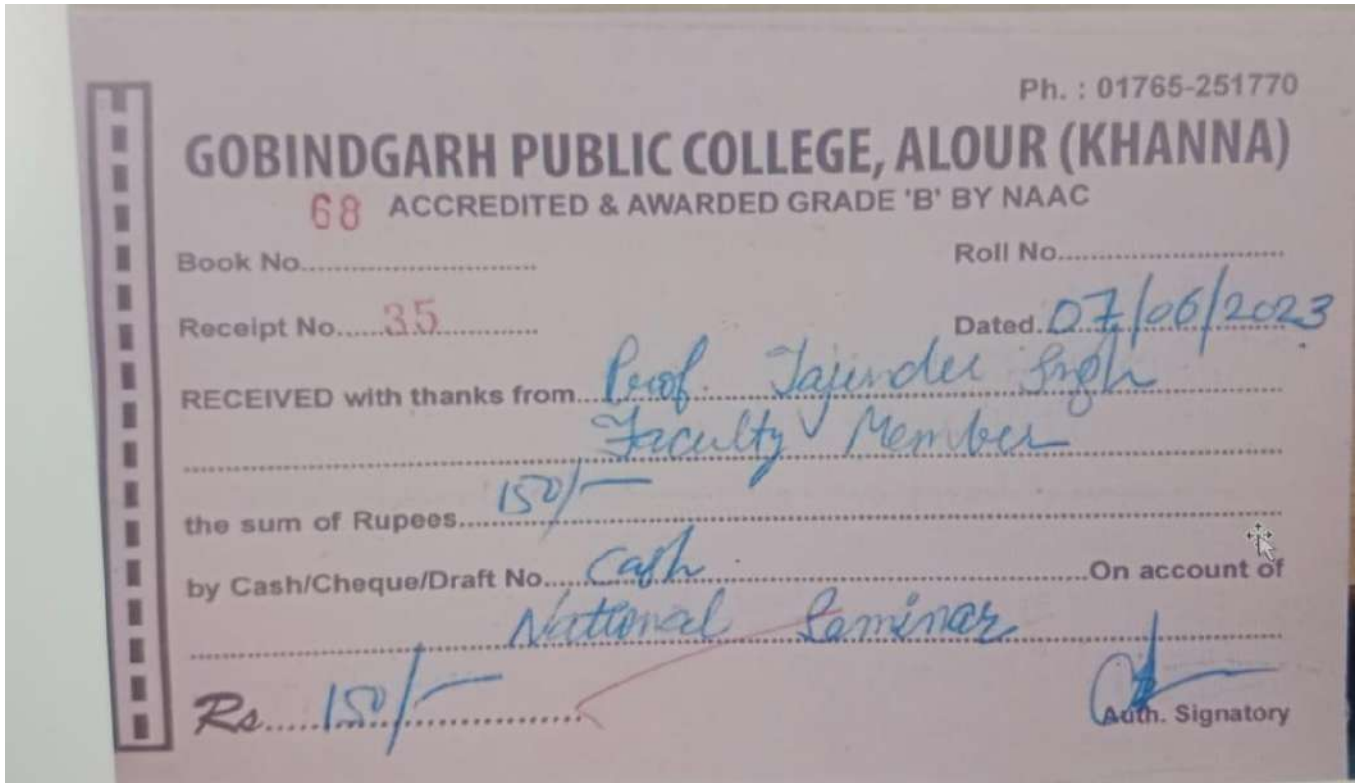 Ph. : 01765-251770
GOBINDGARH PUBLIC COLLEGE, ALOUR (KHANNA)
68 ACCREDITED & AWARDED GRADE 'B' BY NAAC
Book No............................ Roll No............................
Receipt No.....35............... Dated.07/06/2023
RECEIVED with thanks from....Prof. Tajinder Singh
Faculty Member
the sum of Rupees....150/-
by Cash/Cheque/Draft No....Cash....On account of
National Seminar
Rs.....150/-
Auth. Signatory